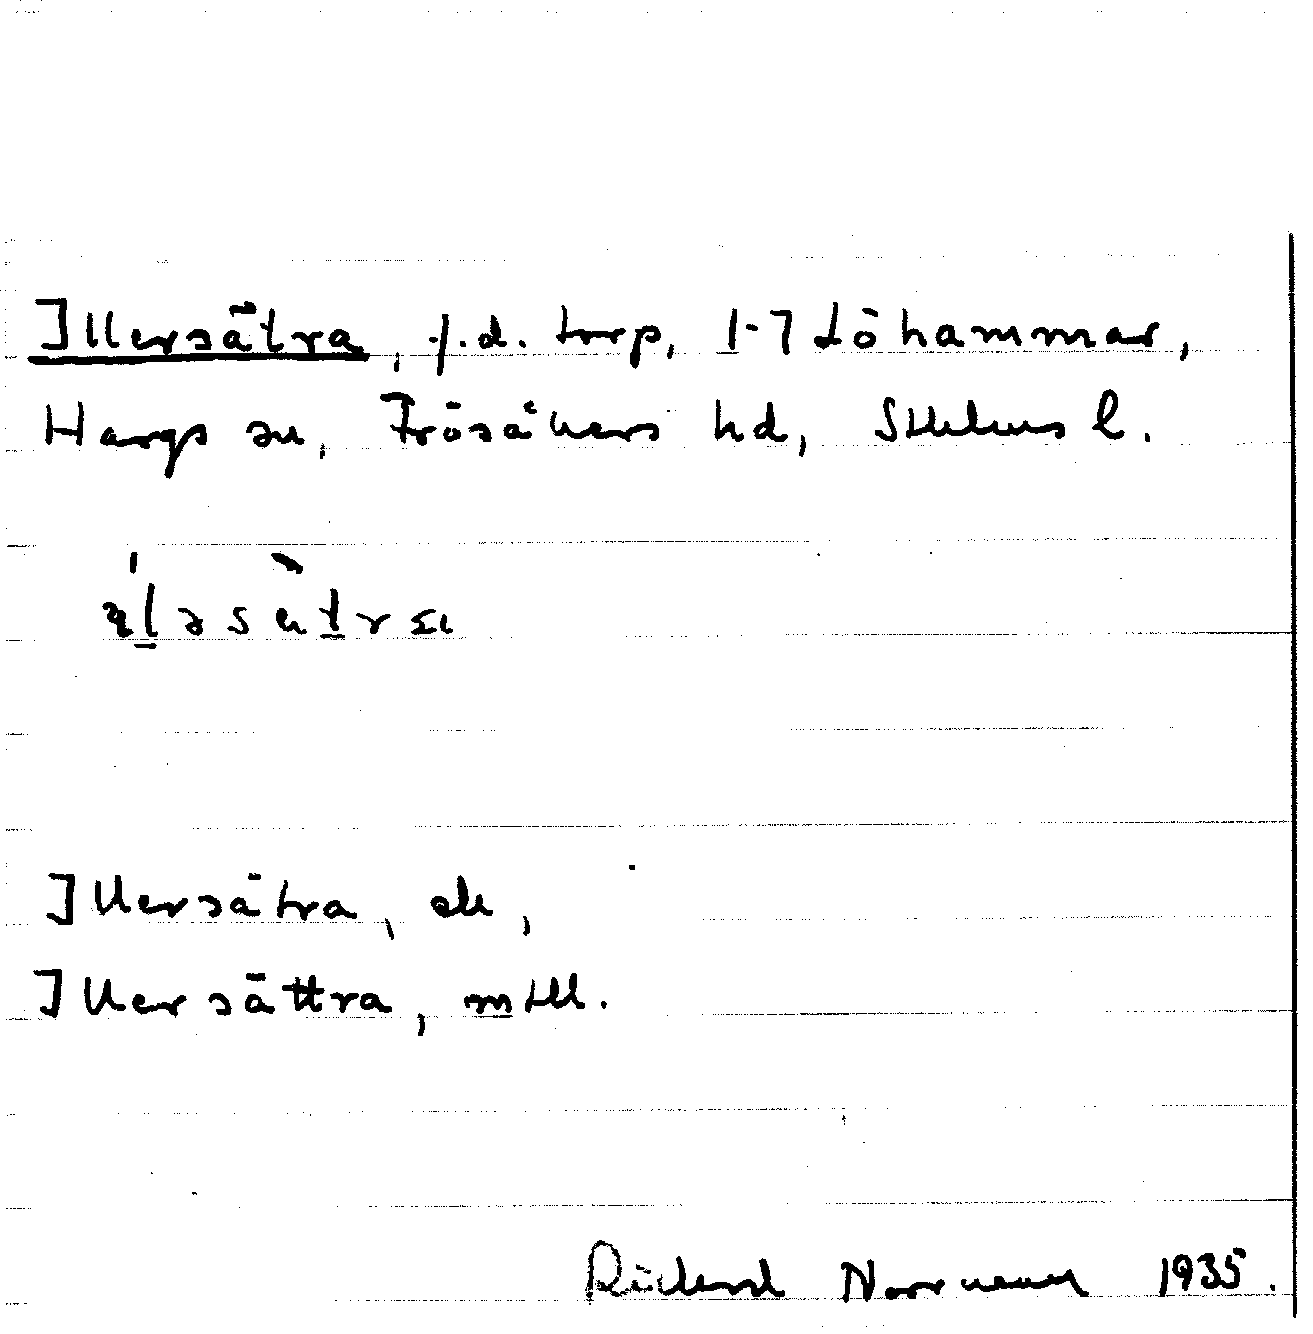 Illersätra, f.d. torp, 1-7 Löhammar,
Hargs sn, Frösåkers hd, Sthlms l.
Illersätra, ek,
Illersättra, mtll.
Rickard Norrman 1935.